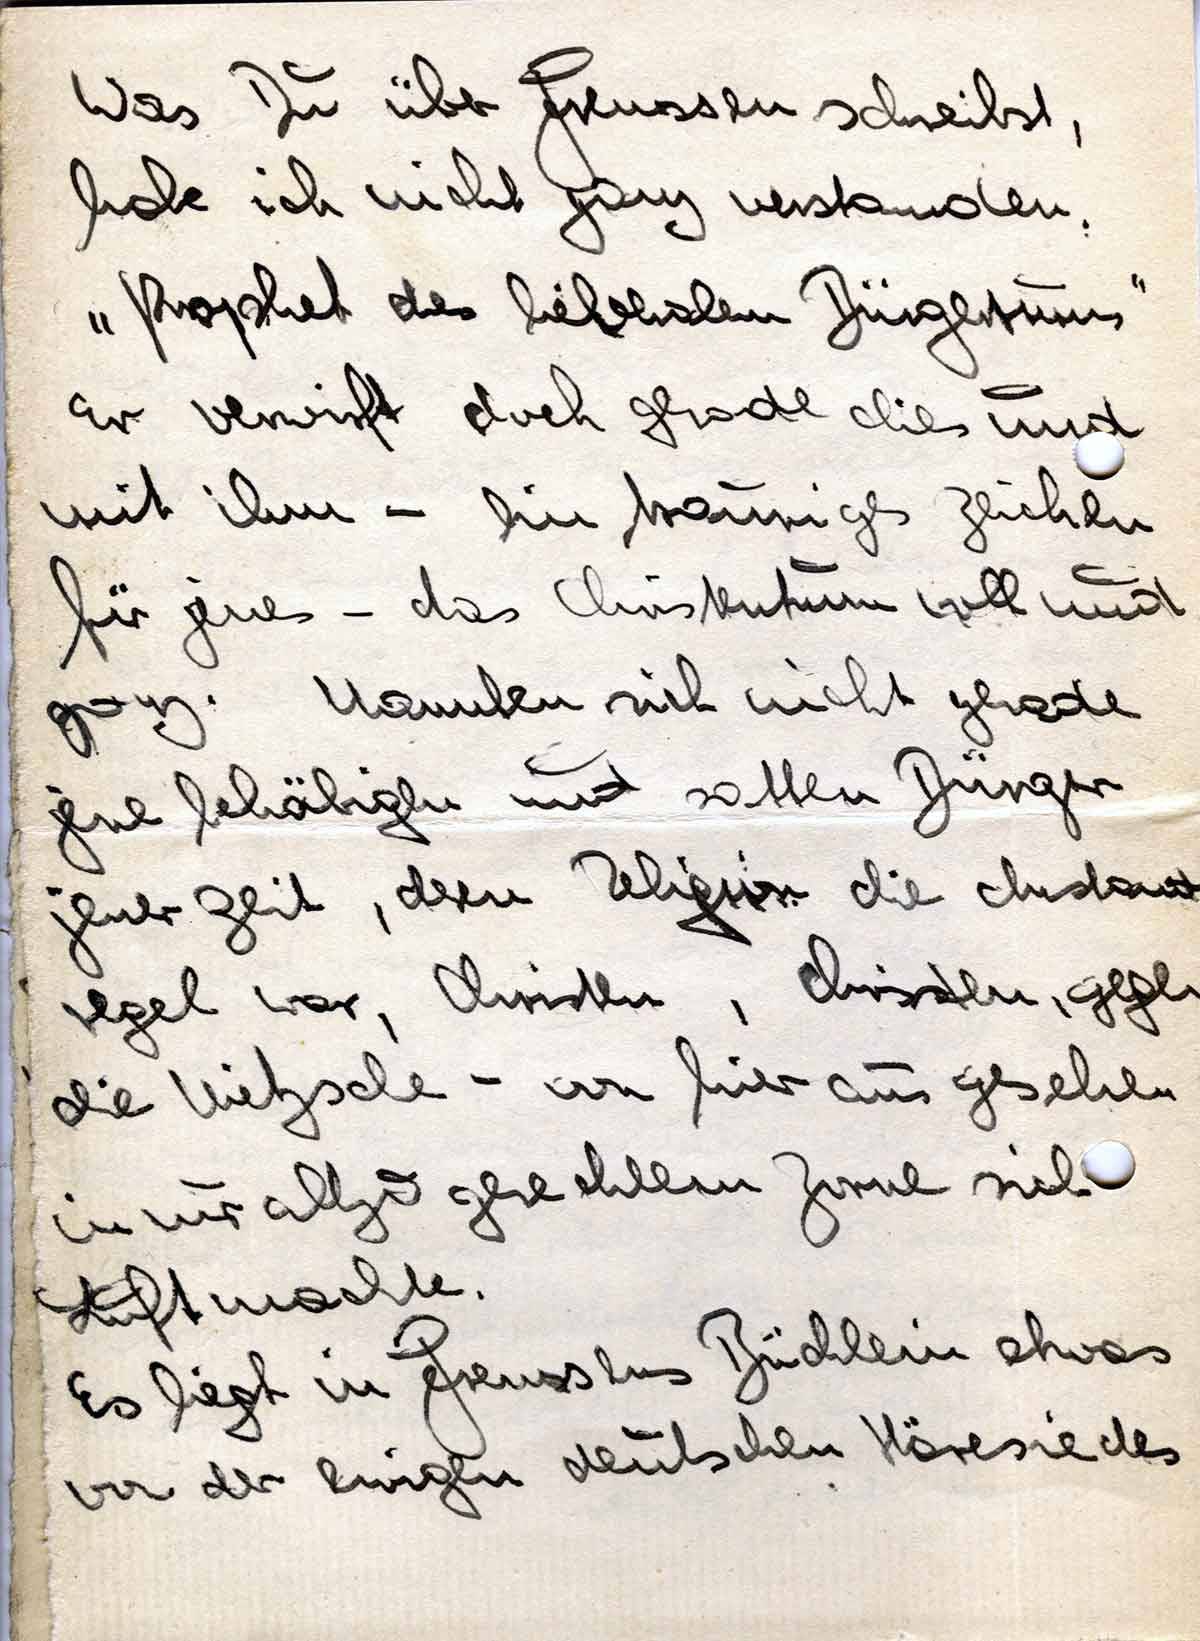 Was Du über Frenssen schreibst,
habe ich nicht ganz verstanden.
„Prophet des liberalen Bürgertums“
Er verwirft doch gerade dies und
mit ihm – ein trauriges Zeichen
für jenes – das Christentum voll und
ganz. Nannten sich nicht gerade
jene behäbigen und satten Bürger
jener Zeit, deren Religion die Anstands
regel war, Christen, Christen, gegen
die Nietzsche – von hier aus gesehen
in nur allzu gerechtem Zorne sich
Luft machte.
Es liegt in Frenssens Büchlein etwas
von der ewigen deutschen Häresie des